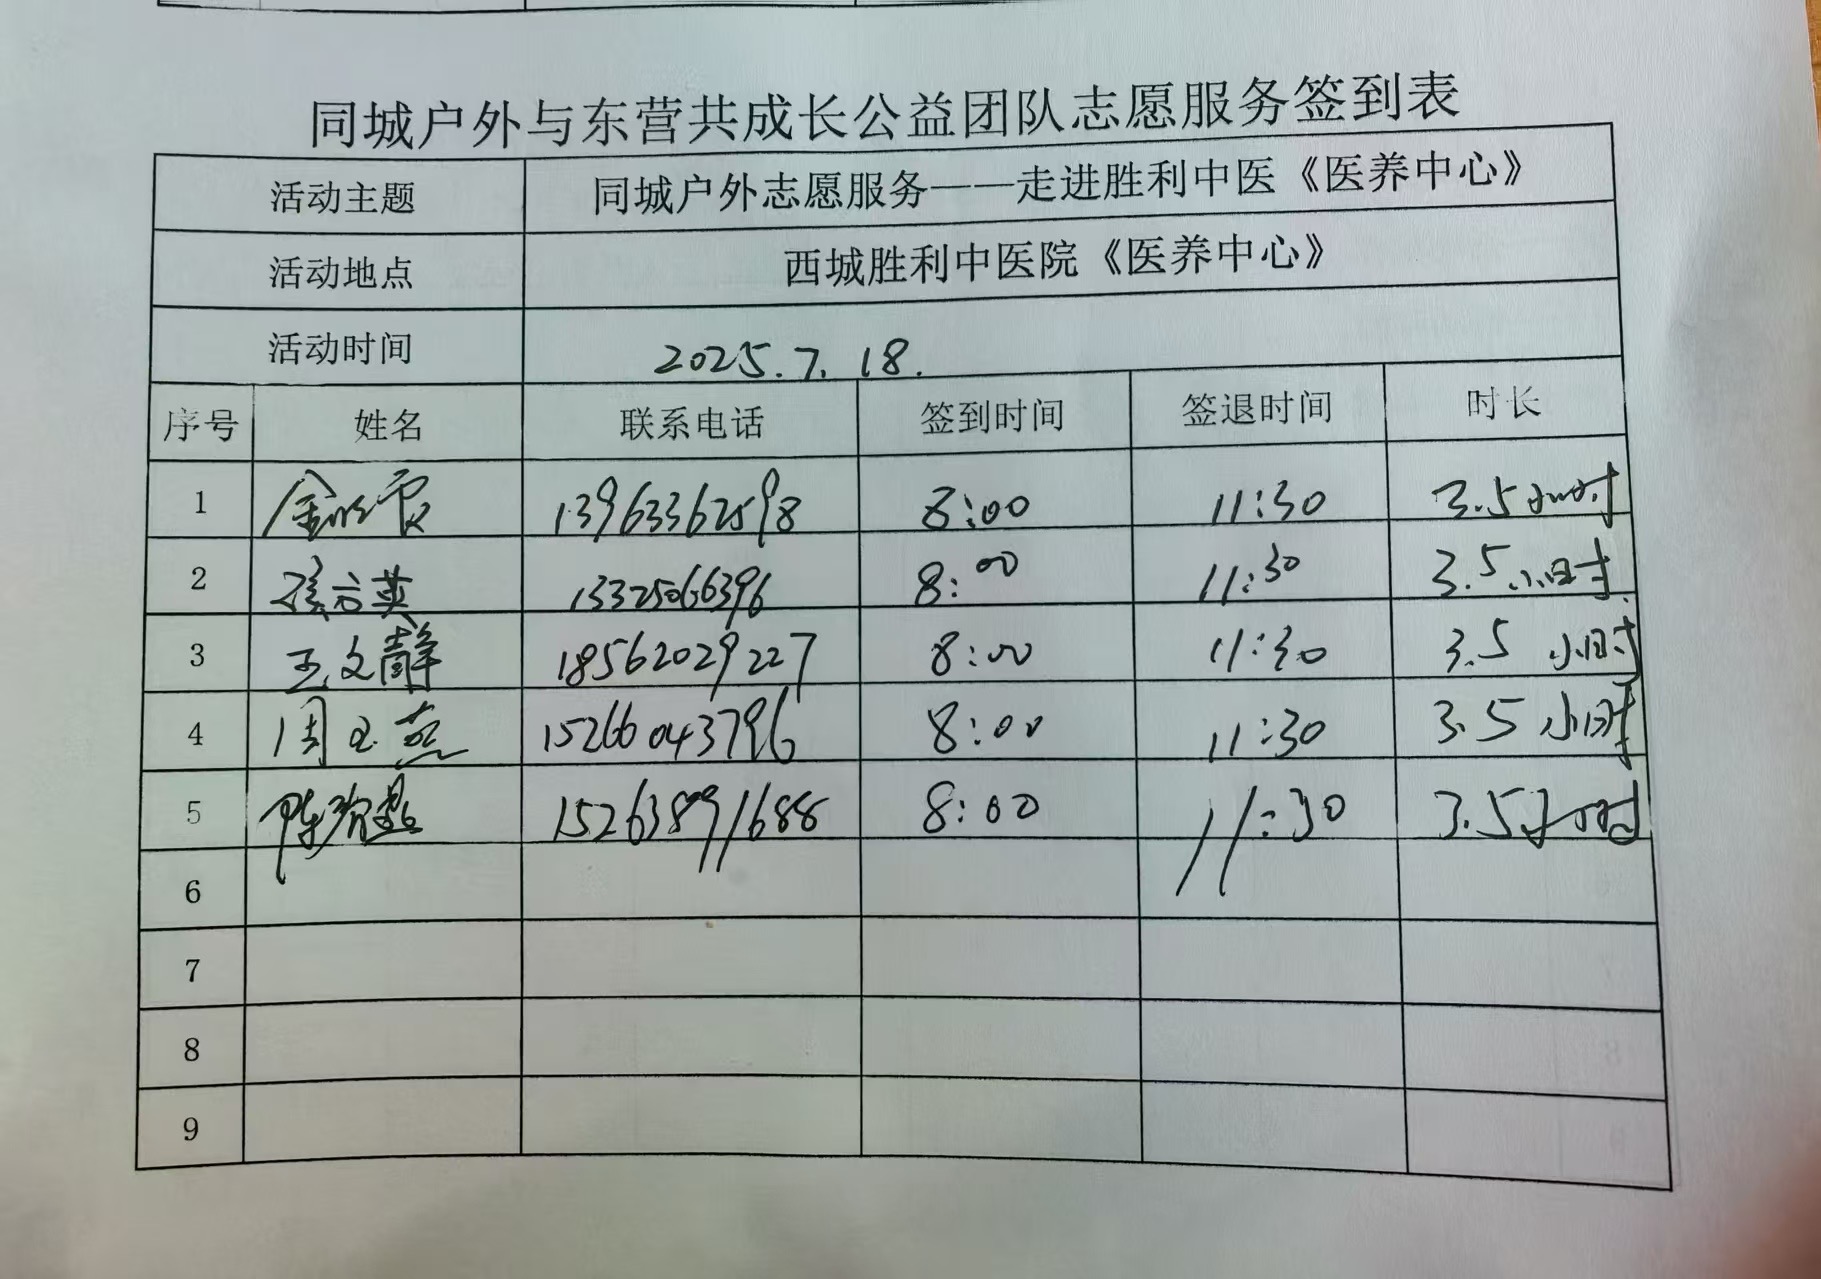 同城户外与东营共成长公益团队志愿服务签到表
活动主题 同城户外志愿服务——走进胜利中医《医养中心》
活动地点 西城胜利中医院《医养中心》
活动时间 2025.7.18.
序号 姓名 联系电话 签到时间 签退时间 时长
1 13963362598 8:00 11:30 3.5小时
2 13325066396 8:00 11:30 3.5小时
3 王文静 18562029227 8:00 11:30 3.5小时
4 周 燕 15266043796 8:00 11:30 3.5小时
5 陈 15263891688 8:00 11:30 3.5小时
6
7
8
9